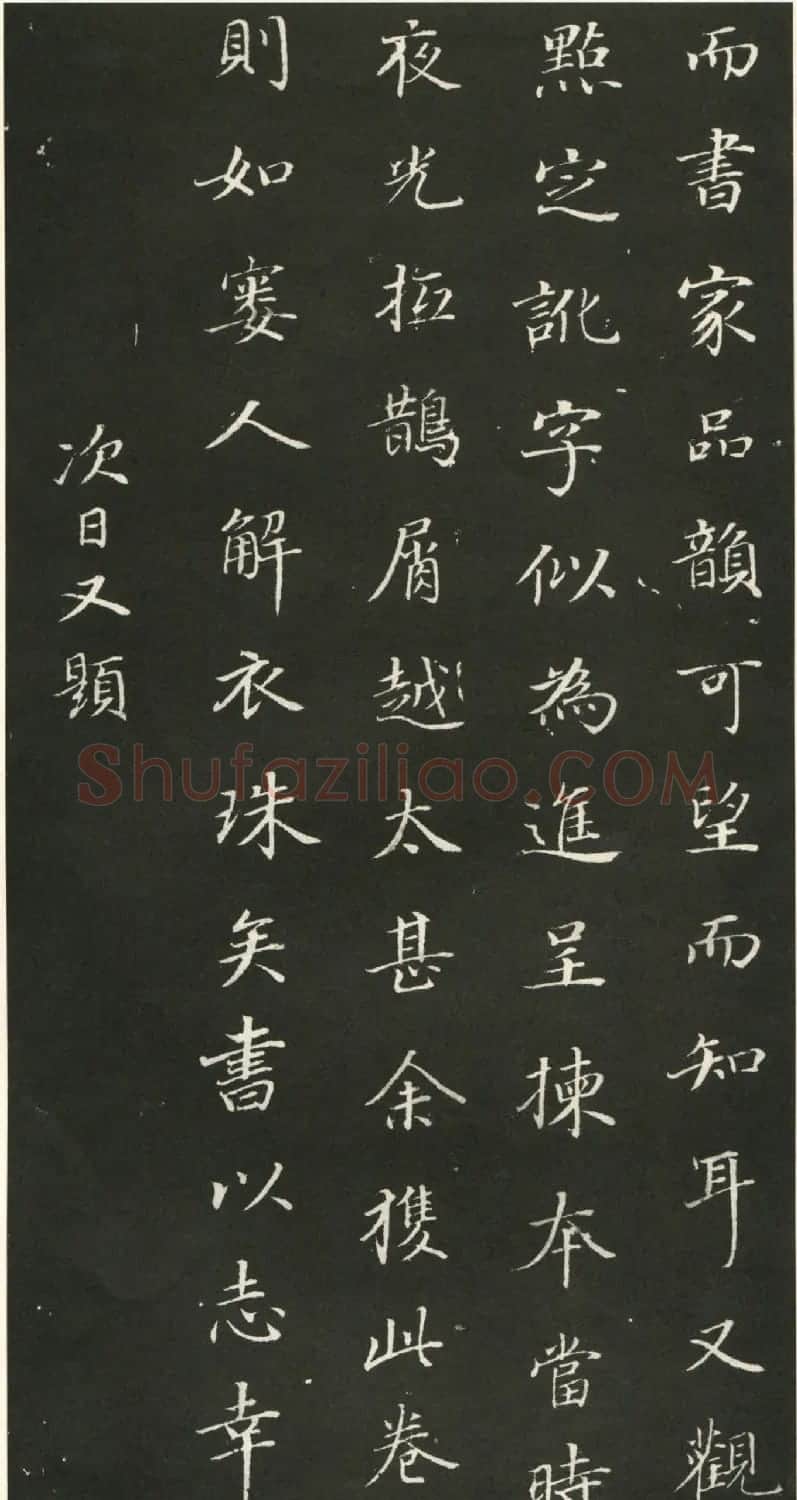 而書家品韻可望而知耳又觀
點定訛字似為進呈揀本當時
夜光抵鵲屑越太甚余獲此卷
則如窶人解衣珠矣書以志幸
次日又題
Shufaziliao.COM